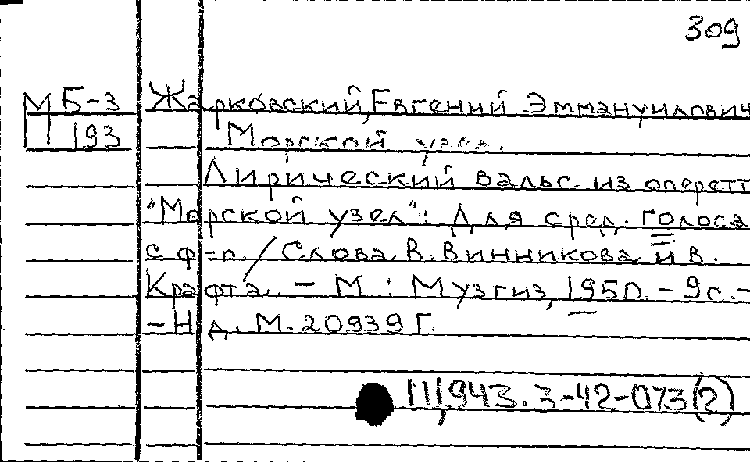 309
М Б-3 Жарковский, Евгений Эммануилович
П 193 Морской узел.
Лирический вальс из оперетт
"Морской узел": Для сред. голоса
с ф-п. / Слова В. Винникова и В.
Крафта. - М: Музгиз, 1950. - 9с. -
- Н.д. М. 20939 Г.
111,943.3-42-073(2)